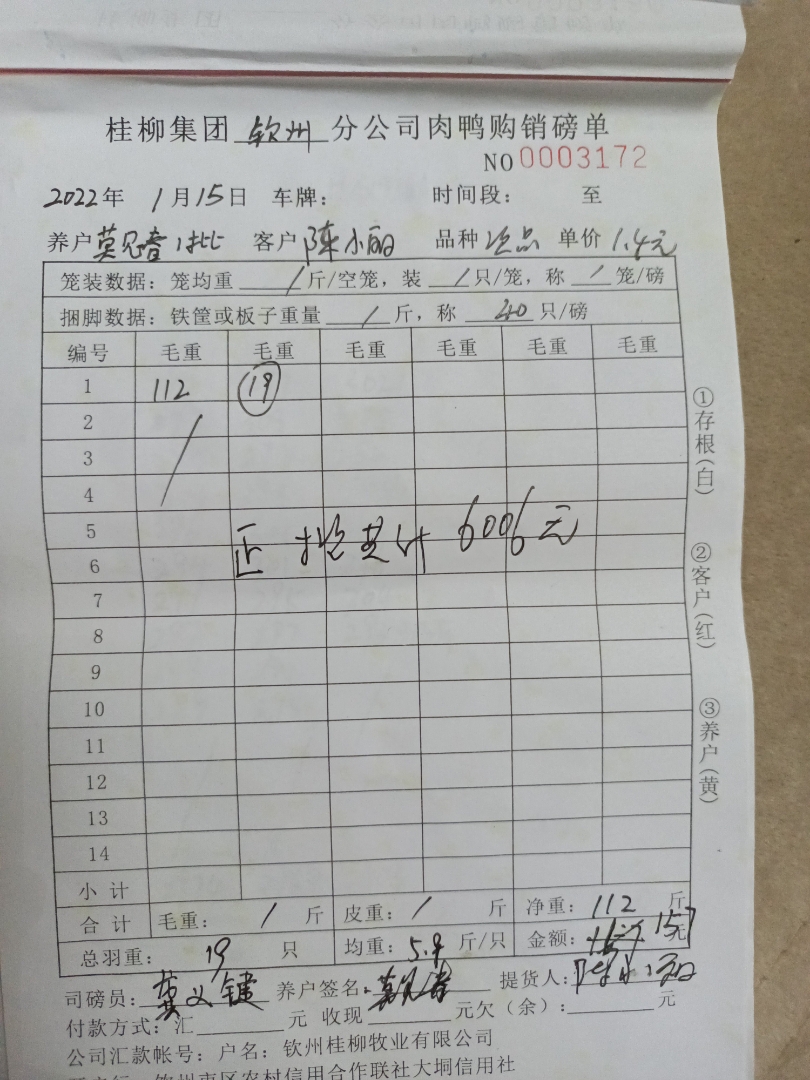 桂柳集团 钦州 分公司肉鸭购销磅单
NO 0003172
2022年 1月15日 车牌: 时间段: 至
养户 莫 1批 客户 陈小丽 品种 次品 单价 1.4元
笼装数据: 笼均重 / 斤/空笼, 装 / 只/笼, 称 / 笼/磅
捆脚数据: 铁筐或板子重量 / 斤, 称 40 只/磅
编号 毛重 毛重 毛重 毛重 毛重 毛重
1 112 19
2
3
4
5
6
正 抢共计 6006元
7
8
9
10
11
12
13
14
小计
合计 毛重: / 斤 皮重: / 斤 净重: 112 斤
总羽重: 19 只 均重: 5.9 斤/只 金额: 157 元
司磅员: 养户签名: 提货人:
付款方式: 汇 元 收现 元欠(余): 元
公司汇款帐号: 户名: 钦州桂柳牧业有限公司
钦州市区农村信用合作联社大垌信用社
①存根(白)
②客户(红)
③养户(黄)